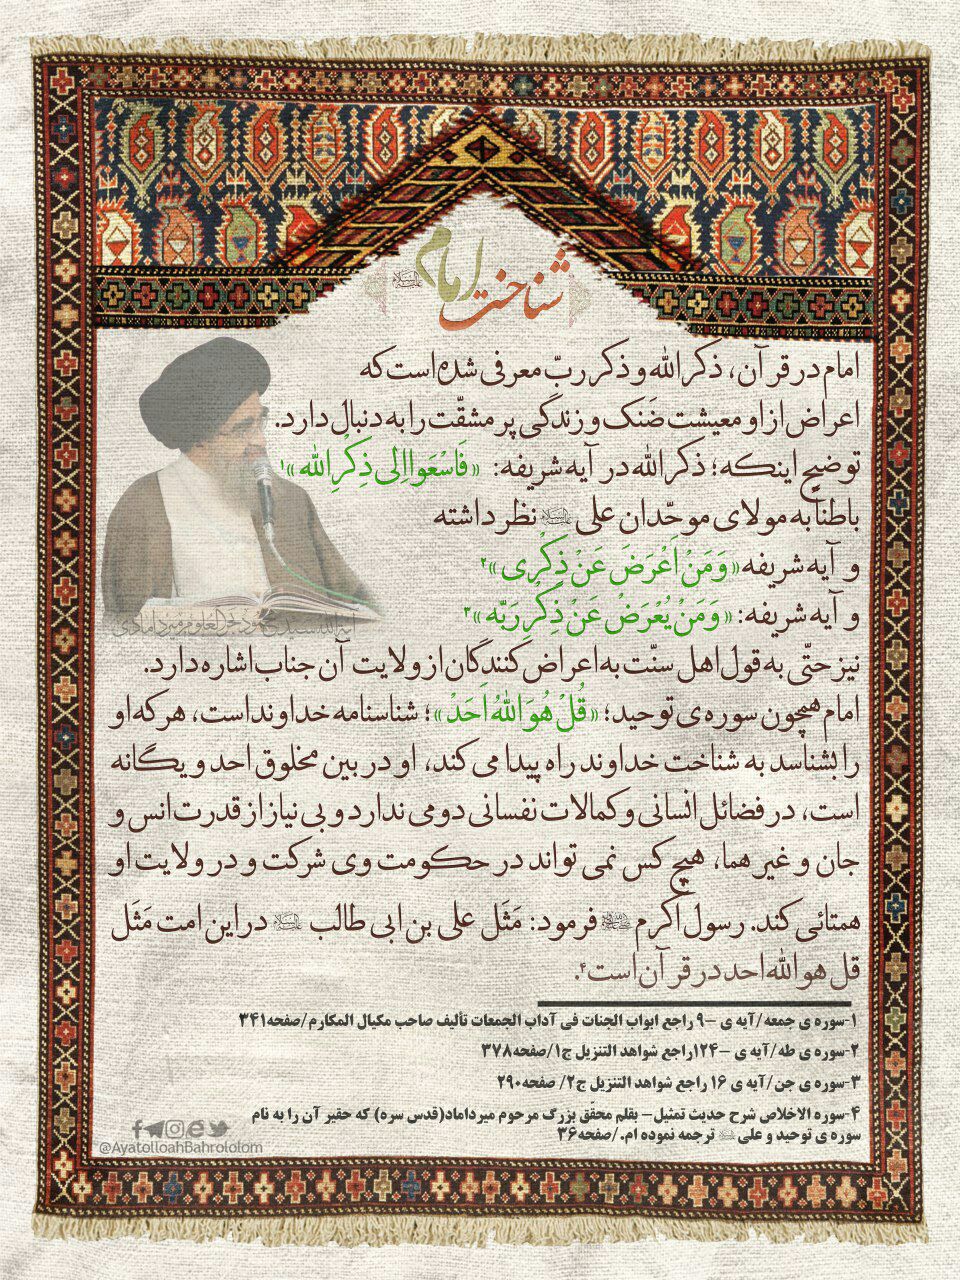 شناخت امام علیه‌السلام
امام در قرآن، ذکر الله و ذکر ربّ معرفی شده است که
اعراض از او معیشت ضَنک و زندگی پر مشقّت را به دنبال دارد.
توضیح اینکه؛ ذکر الله در آیه شریفه: «فَاسْعَوا اِلی ذِکْرِ الله»۱
باطناً به مولای موحّدان علی علیه‌السلام نظر داشته
و آیه شریفه «وَمَنْ اَعْرَضَ عَنْ ذِکْری»۲
و آیه شریفه: «وَمَنْ یُعْرِضْ عَنْ ذِکْرِ رَبّه»۳
نیز حتّی به قول اهل سنّت به اعراض کنندگان از ولایت آن جناب اشاره دارد.
امام همچون سوره‌ی توحید؛ «قُلْ هُوَ اللهُ اَحَدْ»؛ شناسنامه خداوند است، هر که او
را بشناسد به شناخت خداوند راه پیدا می کند، او در بین مخلوق احد و یگانه
است، در فضائل انسانی و کمالات نفسانی دومی ندارد و بی نیاز از قدرت انس و
جان و غیر هما، هیچ کس نمی تواند در حکومت وی شرکت و در ولایت او
همتائی کند. رسول اکرم ﷺ فرمود: مَثَل علی بن ابی طالب علیه‌السلام در این امت مَثَل
قل هو الله احد در قرآن است۴.
۱-سوره ی جمعه/آیه ی -۹ راجع ابواب الجنات فی آداب الجمعات تألیف صاحب مکیال المکارم/صفحه۳۴۱
۲-سوره ی طه/آیه ی -۱۲۴راجع شواهد التنزیل ج۱/صفحه۳۷۸
۳-سوره ی جن/آیه ی ۱۶ راجع شواهد التنزیل ج۲/ صفحه۲۹۰
۴-سوره الاخلاص شرح حدیث تمثیل- بقلم محقّق بزرگ مرحوم میرداماد(قدس سره) که حقیر آن را به نام
سوره ی توحید و علی علیه‌السلام ترجمه نموده ام./صفحه۳۶
آیة الله سید محمود بحرالعلوم میردامادی
@AyatolloahBahrololom